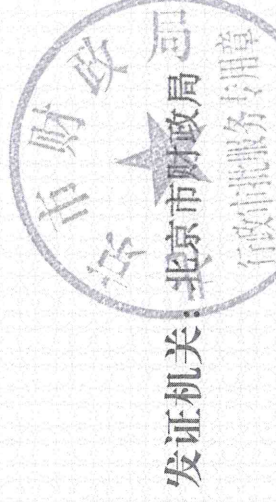 发证机关：北京市财政局
北京市财政局
行政审批服务专用章